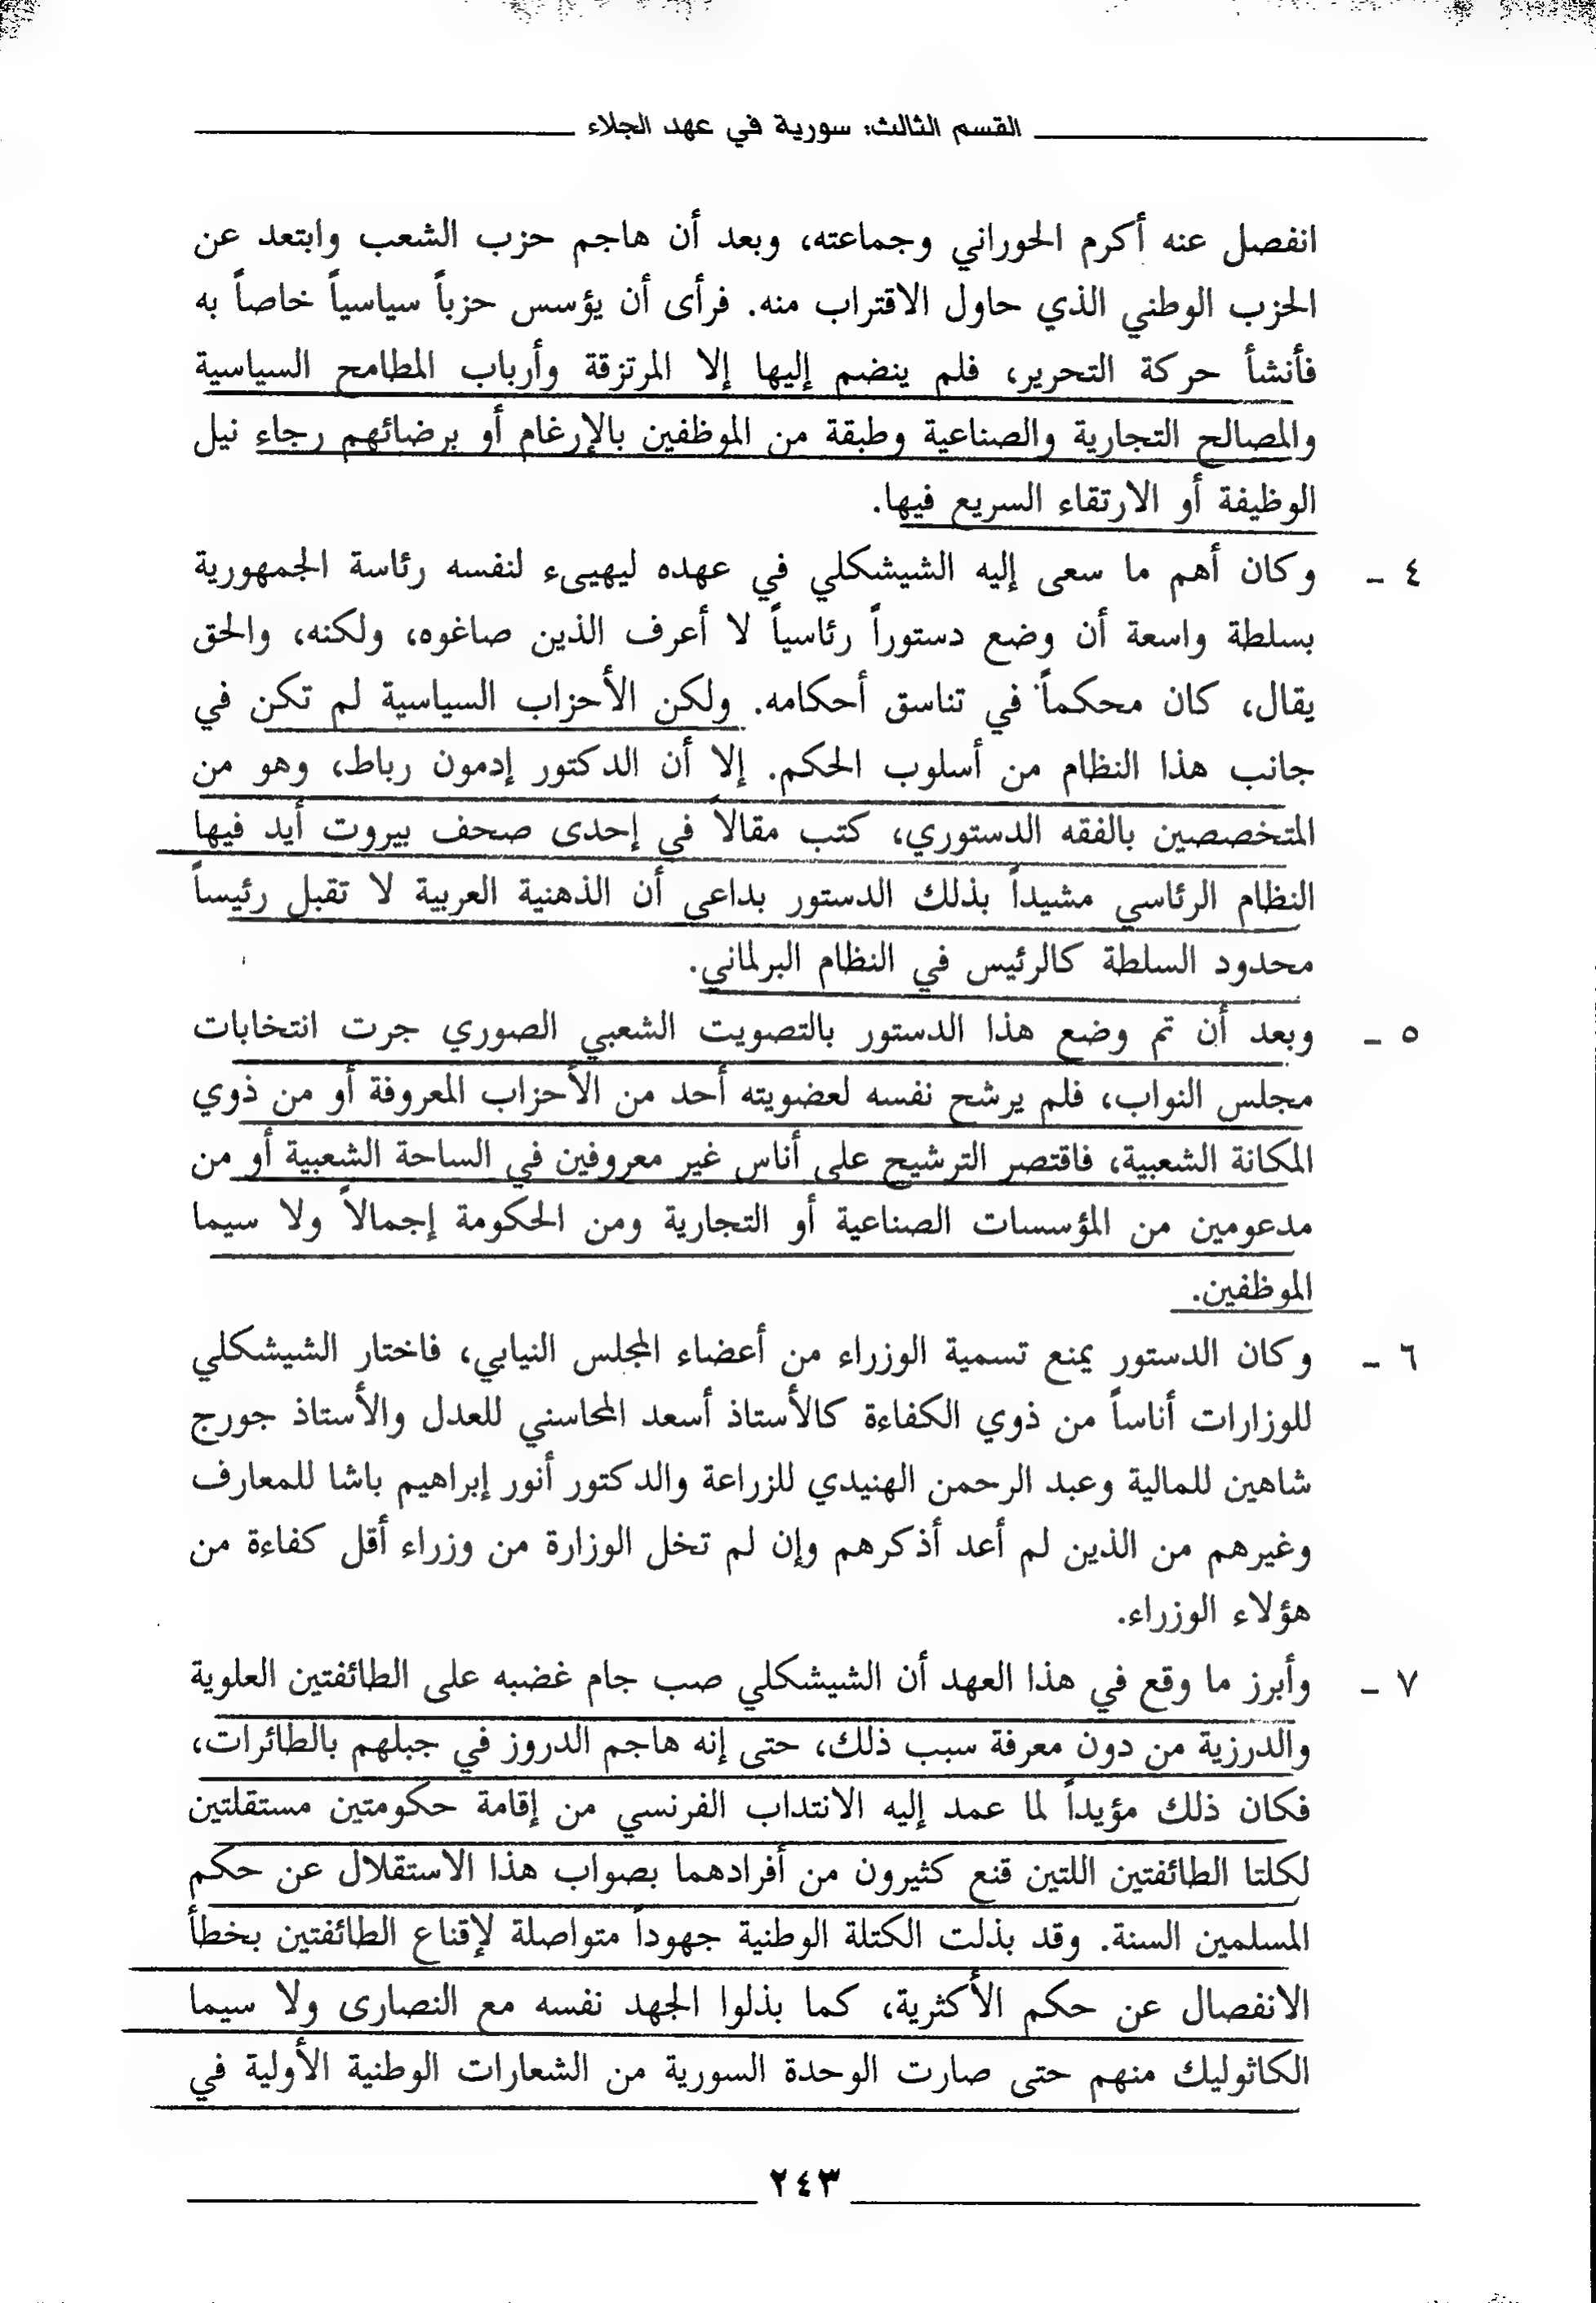 القسم الثالث: سورية في عهد الجلاء
انفصل عنه أكرم الحوراني وجماعته، وبعد أن هاجم حزب الشعب وابتعد عن
الحزب الوطني الذي حاول الاقتراب منه. فرأى أن يؤسس حزباً سياسياً خاصاً به
فأنشأ حركة التحرير، فلم ينضم إليها إلا المرتزقة وأرباب المطامح السياسية
والمصالح التجارية والصناعية وطبقة من الموظفين بالإرغام أو برضائهم رجاء نيل
الوظيفة أو الارتقاء السريع فيها.
٤ - وكان أهم ما سعى إليه الشيشكلي في عهده ليهيىء لنفسه رئاسة الجمهورية
بسلطة واسعة أن وضع دستوراً رئاسياً لا أعرف الذين صاغوه، ولكنه، والحق
يقال، كان محكماً في تناسق أحكامه. ولكن الأحزاب السياسية لم تكن في
جانب هذا النظام من أسلوب الحكم. إلا أن الدكتور إدمون رباط، وهو من
المتخصصين بالفقه الدستوري، كتب مقالاً في إحدى صحف بيروت أيد فيها
النظام الرئاسي مشيداً بذلك الدستور بداعي أن الذهنية العربية لا تقبل رئيساً
محدود السلطة كالرئيس في النظام البرلماني.
٥ - وبعد أن تم وضع هذا الدستور بالتصويت الشعبي الصوري جرت انتخابات
مجلس النواب، فلم يرشح نفسه لعضويته أحد من الأحزاب المعروفة أو من ذوي
المكانة الشعبية، فاقتصر الترشيح على أناس غير معروفين في الساحة الشعبية أو من
مدعومين من المؤسسات الصناعية أو التجارية ومن الحكومة إجمالاً ولا سيما
الموظفين.
٦ - وكان الدستور يمنع تسمية الوزراء من أعضاء المجلس النيابي، فاختار الشيشكلي
للوزارات أناساً من ذوي الكفاءة كالأستاذ أسعد المحاسني للعدل والأستاذ جورج
شاهين للمالية وعبد الرحمن الهنيدي للزراعة والدكتور أنور إبراهيم باشا للمعارف
وغيرهم من الذين لم أعد أذكرهم وإن لم تخل الوزارة من وزراء أقل كفاءة من
هؤلاء الوزراء.
٧ - وأبرز ما وقع في هذا العهد أن الشيشكلي صب جام غضبه على الطائفتين العلوية
والدرزية من دون معرفة سبب ذلك، حتى إنه هاجم الدروز في جبلهم بالطائرات،
فكان ذلك مؤيداً لما عمد إليه الانتداب الفرنسي من إقامة حكومتين مستقلتين
لكلتا الطائفتين اللتين قنع كثيرون من أفرادهما بصواب هذا الاستقلال عن حكم
المسلمين السنة. وقد بذلت الكتلة الوطنية جهوداً متواصلة لإقناع الطائفتين بخطأ
الانفصال عن حكم الأكثرية، كما بذلوا الجهد نفسه مع النصارى ولا سيما
الكاثوليك منهم حتى صارت الوحدة السورية من الشعارات الوطنية الأولية في
٢٤٣